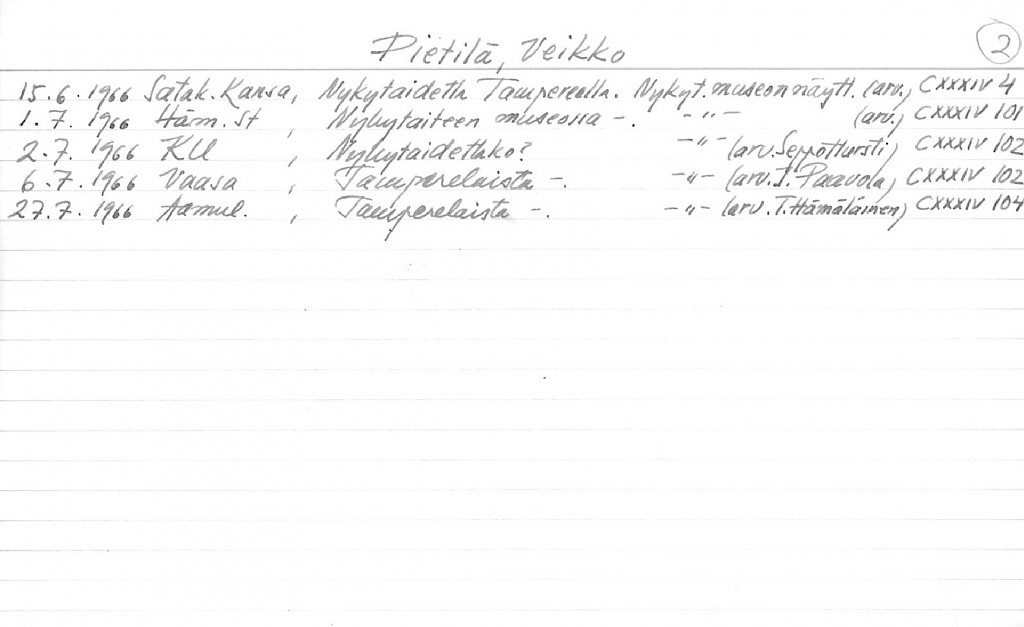 Pietilä, Veikko
2
15.6.1966 Satak. Kansa, Nykytaidetta Tampereella. Nykyt. museon näytt. (arv.) CXXXIV 4
1.7.1966 Häm. St , Nykytaiteen museossa -. -"- (arv.) CXXXIV 101
2.7.1966 KU , Nykytaidettako? -"- (arv. Seppo Hursti) CXXXIV 102
6.7.1966 Vaasa , Tamperelaista -. -"- (arv. I. Paavola) CXXXIV 102
27.7.1966 Aamul. , Tamperelaista -. -"- (arv. T. Hämäläinen) CXXXIV 104